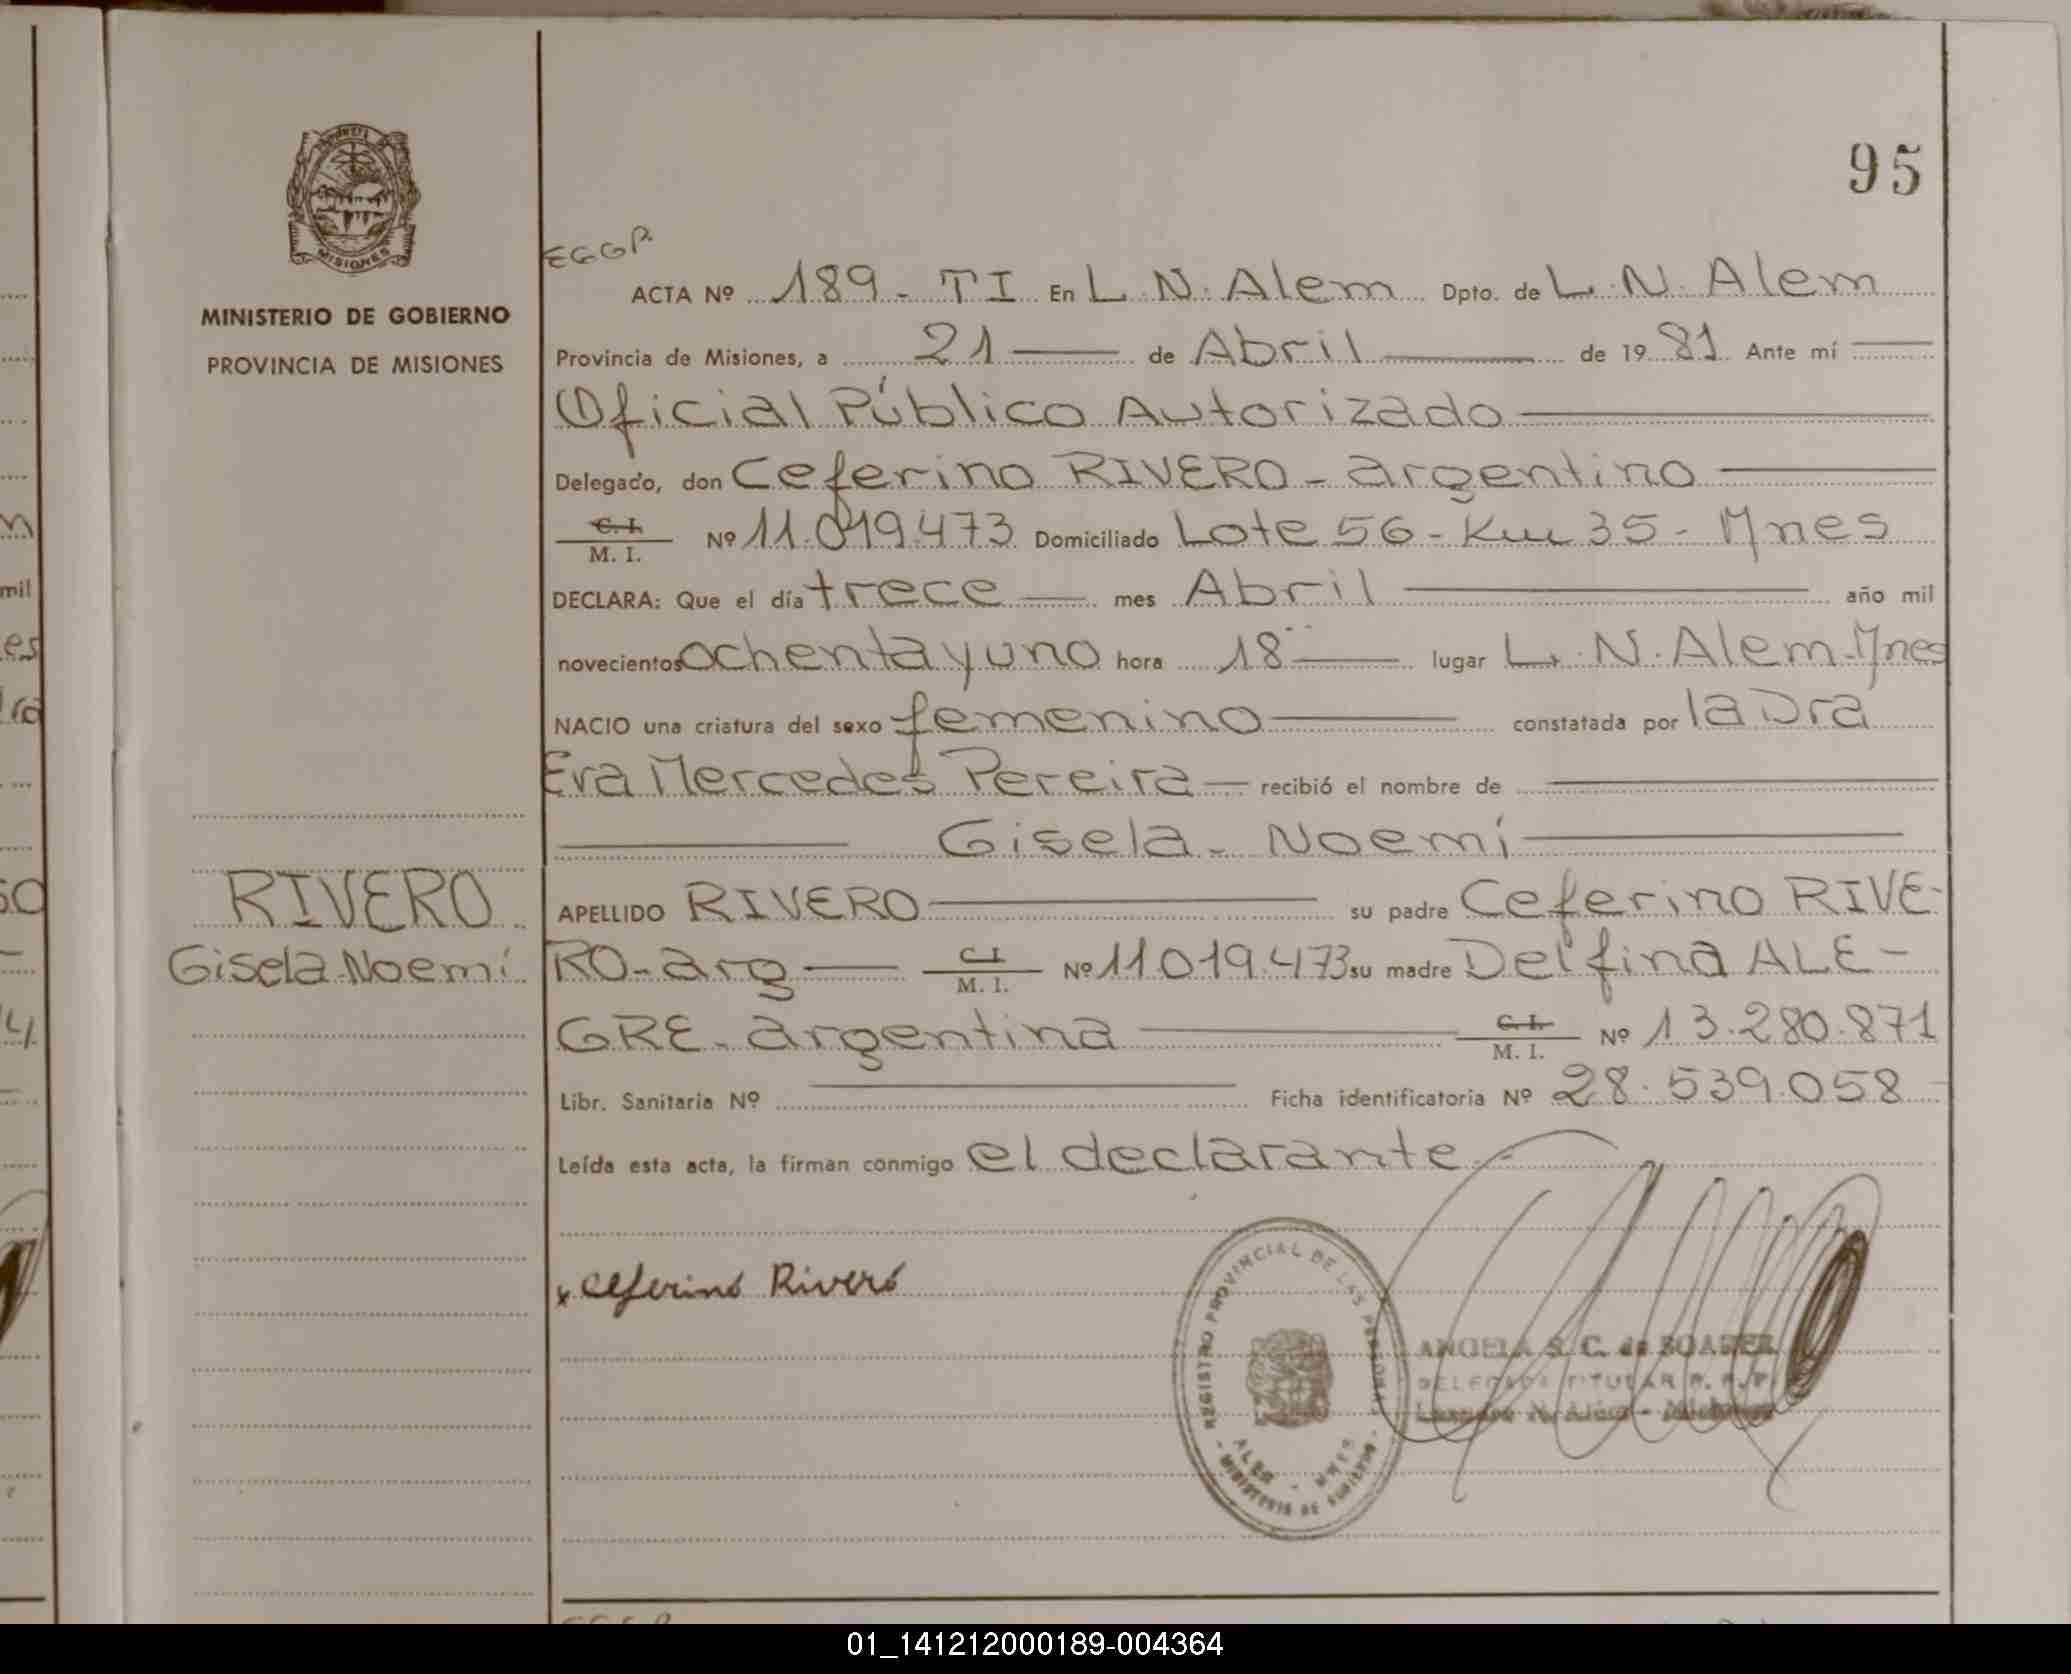 95
MINISTERIO DE GOBIERNO
PROVINCIA DE MISIONES
EGGP
ACTA Nº 189 - TI En L. N. Alem Dpto. de L. N. Alem
Provincia de Misiones, a 21 de Abril de 1981 Ante mí
Oficial Público Autorizado
Delegado, don Ceferino RIVERO - argentino
C. I. M. I. Nº 11.019.473 Domiciliado Lote 56 - Km 35 - Mnes
DECLARA: Que el día trece mes Abril año mil
novecientos ochenta y uno hora 18 lugar L. N. Alem. Mnes
NACIO una criatura del sexo femenino constatada por la Dra
Eva Mercedes Pereira recibió el nombre de
Gisela - Noemí
RIVERO
Gisela Noemí
APELLIDO RIVERO su padre Ceferino RIVE-
RO - arg C. I. M. I. Nº 11.019.473 su madre Delfina ALE-
GRE - argentina C. I. M. I. Nº 13.280.871
Libr. Sanitaria Nº Ficha identificatoria Nº 28.539.058
Leída esta acta, la firman conmigo el declarante
x Ceferino Rivero
REGISTRO PROVINCIAL DE LAS PERSONAS
ALEM - MNES
- MINISTERIO DE GOBIERNO -
ANGELA S. C. de SOAREZ
DELEGADA TITULAR R. P. P.
Leandro N. Alem - Misiones
01_141212000189-004364